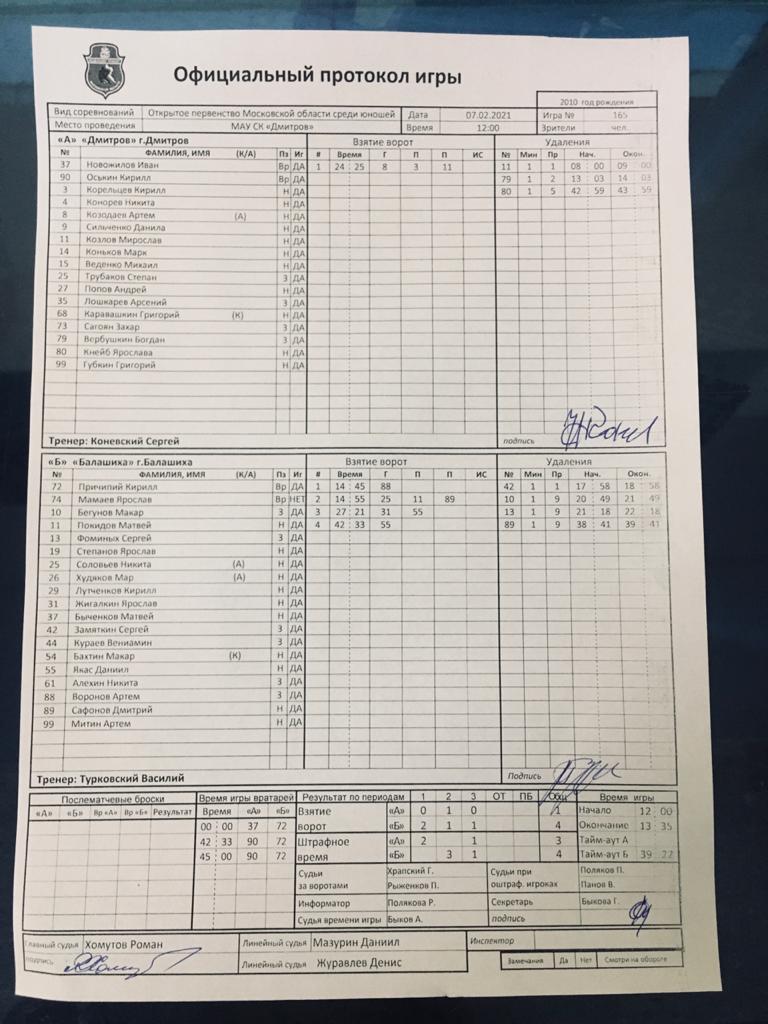 Официальный протокол игры
2010 год рождения
Вид соревнований Открытое первенство Московской области среди юношей Дата 07.02.2021 Игра № 165
Место проведения МАУ СК «Дмитров» Время 12:00 Зрители чел.
«А» «Дмитров» г.Дмитров Взятие ворот Удаления
№ ФАМИЛИЯ, ИМЯ (К/А) Пз Иг # Время Г П П ИС № Мин Пр Нач. Окон.
37 Новожилов Иван Вр ДА 1 24 : 25 8 3 11 11 1 1 08 : 00 09 : 00
90 Оськин Кирилл Вр ДА 79 1 2 13 : 03 14 : 03
3 Корельцев Кирилл Н ДА 80 1 5 42 : 59 43 : 59
4 Конорев Никита Н ДА
8 Козодаев Артем (А) Н ДА
9 Сильченко Данила Н ДА
11 Козлов Мирослав Н ДА
14 Коньков Марк Н ДА
15 Веденко Михаил Н ДА
25 Трубаков Степан З ДА
27 Попов Андрей Н ДА
35 Лошкарев Арсений З ДА
68 Каравашкин Григорий (К) Н ДА
73 Сагоян Захар З ДА
79 Вербушкин Богдан З ДА
80 Кнейб Ярослава Н ДА
99 Губкин Григорий Н ДА
Тренер: Коневский Сергей подпись
«Б» «Балашиха» г.Балашиха Взятие ворот Удаления
№ ФАМИЛИЯ, ИМЯ (К/А) Пз Иг # Время Г П П ИС № Мин Пр Нач. Окон.
72 Причипий Кирилл Вр ДА 1 14 : 45 88 42 1 1 17 : 58 18 : 58
74 Мамаев Ярослав Вр НЕТ 2 14 : 55 25 11 89 10 1 9 20 : 49 21 : 49
10 Бегунов Макар З ДА 3 27 : 21 31 55 13 1 9 21 : 18 22 : 18
11 Покидов Матвей Н ДА 4 42 : 33 55 89 1 9 38 : 41 39 : 41
13 Фоминых Сергей З ДА
19 Степанов Ярослав Н ДА
25 Соловьев Никита (А) Н ДА
26 Худяков Мар (А) Н ДА
29 Лутченков Кирилл Н ДА
31 Жигалкин Ярослав Н ДА
37 Быченков Матвей Н ДА
42 Замяткин Сергей З ДА
44 Кураев Вениамин З ДА
54 Бахтин Макар (К) Н ДА
55 Якас Даниил Н ДА
61 Алехин Никита З ДА
88 Воронов Артем З ДА
89 Сафонов Дмитрий Н ДА
99 Митин Артем Н ДА
Тренер: Турковский Василий Подпись
Послематчевые броски Время игры вратарей Результат по периодам 1 2 3 ОТ ПБ Общ Время игры
«А» «Б» Вр «А» Вр «Б» Результат Время «А» «Б» Взятие «А» 0 1 0 1 Начало 12 : 00
00 : 00 37 72 ворот «Б» 2 1 1 4 Окончание 13 : 35
42 : 33 90 72 Штрафное «А» 2 1 3 Тайм-аут А
45 : 00 90 72 время «Б» 3 1 4 Тайм-аут Б 39 : 22
Судьи за воротами Храпский Г. Рыженков П. Судьи при оштраф. игроках Поляков П. Панов В.
Информатор Полякова Р. Секретарь Быкова Г.
Судья времени игры Быков А. подпись
Главный судья Хомутов Роман Линейный судья Мазурин Даниил Инспектор
подпись Линейный судья Журавлев Денис Замечания Да Нет Смотри на обороте